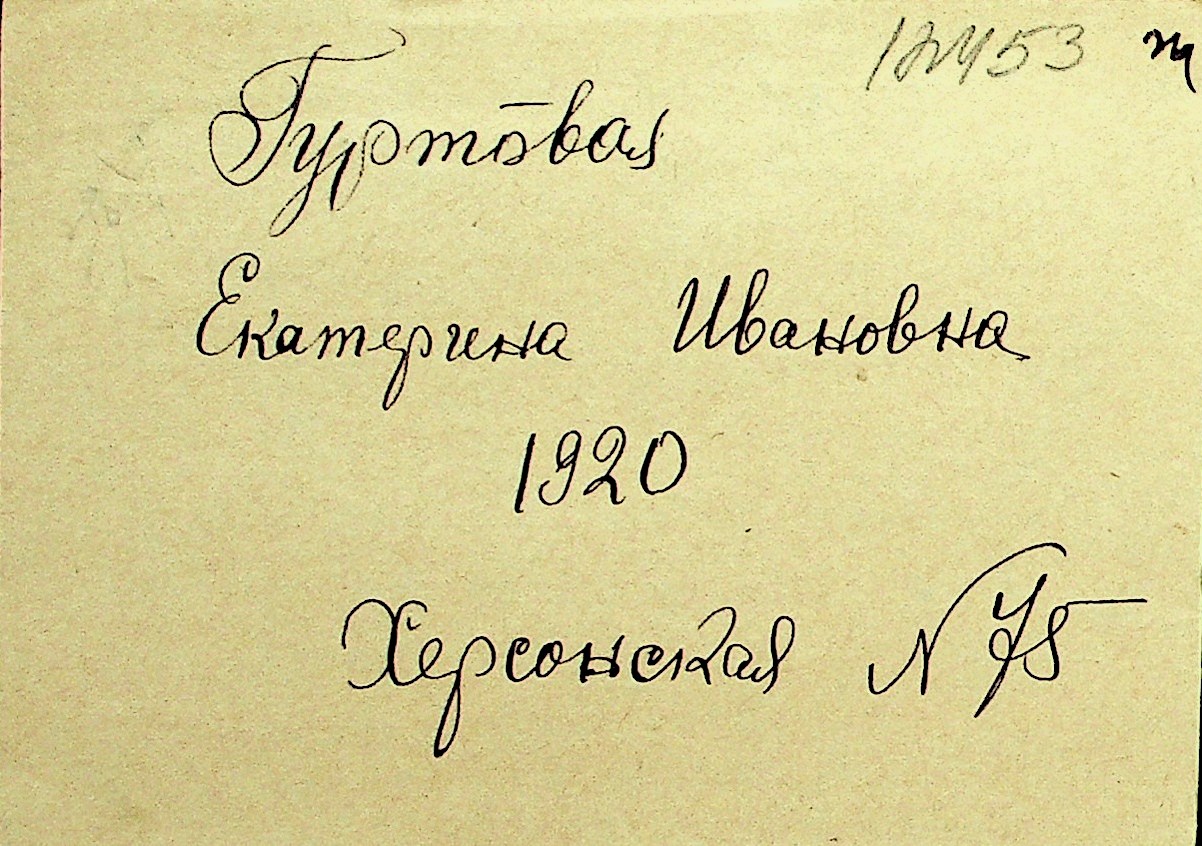 12453
Гуртовая
Екатерина Ивановна
1920
Херсонская N 75